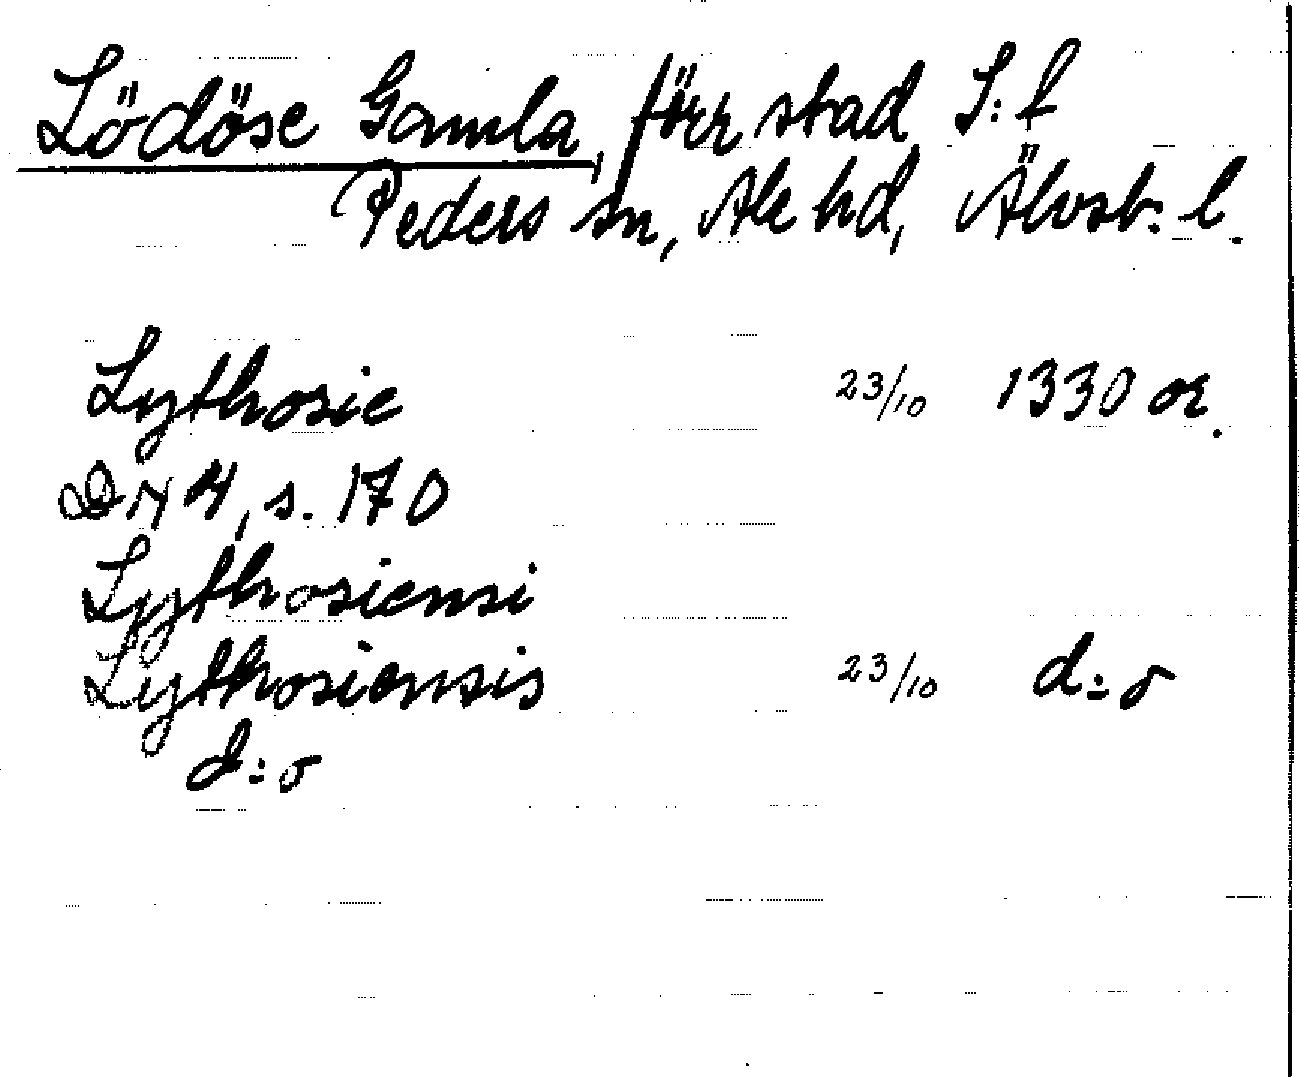 Lödöse Gamla, förr stad S:t
Peders sn, Ale hd, Älvsb: l.
Lythosie 23/10 1330 or.
DN 4, s. 170
Lythosiensi
Lythosiensis 23/10 d:o
d:o